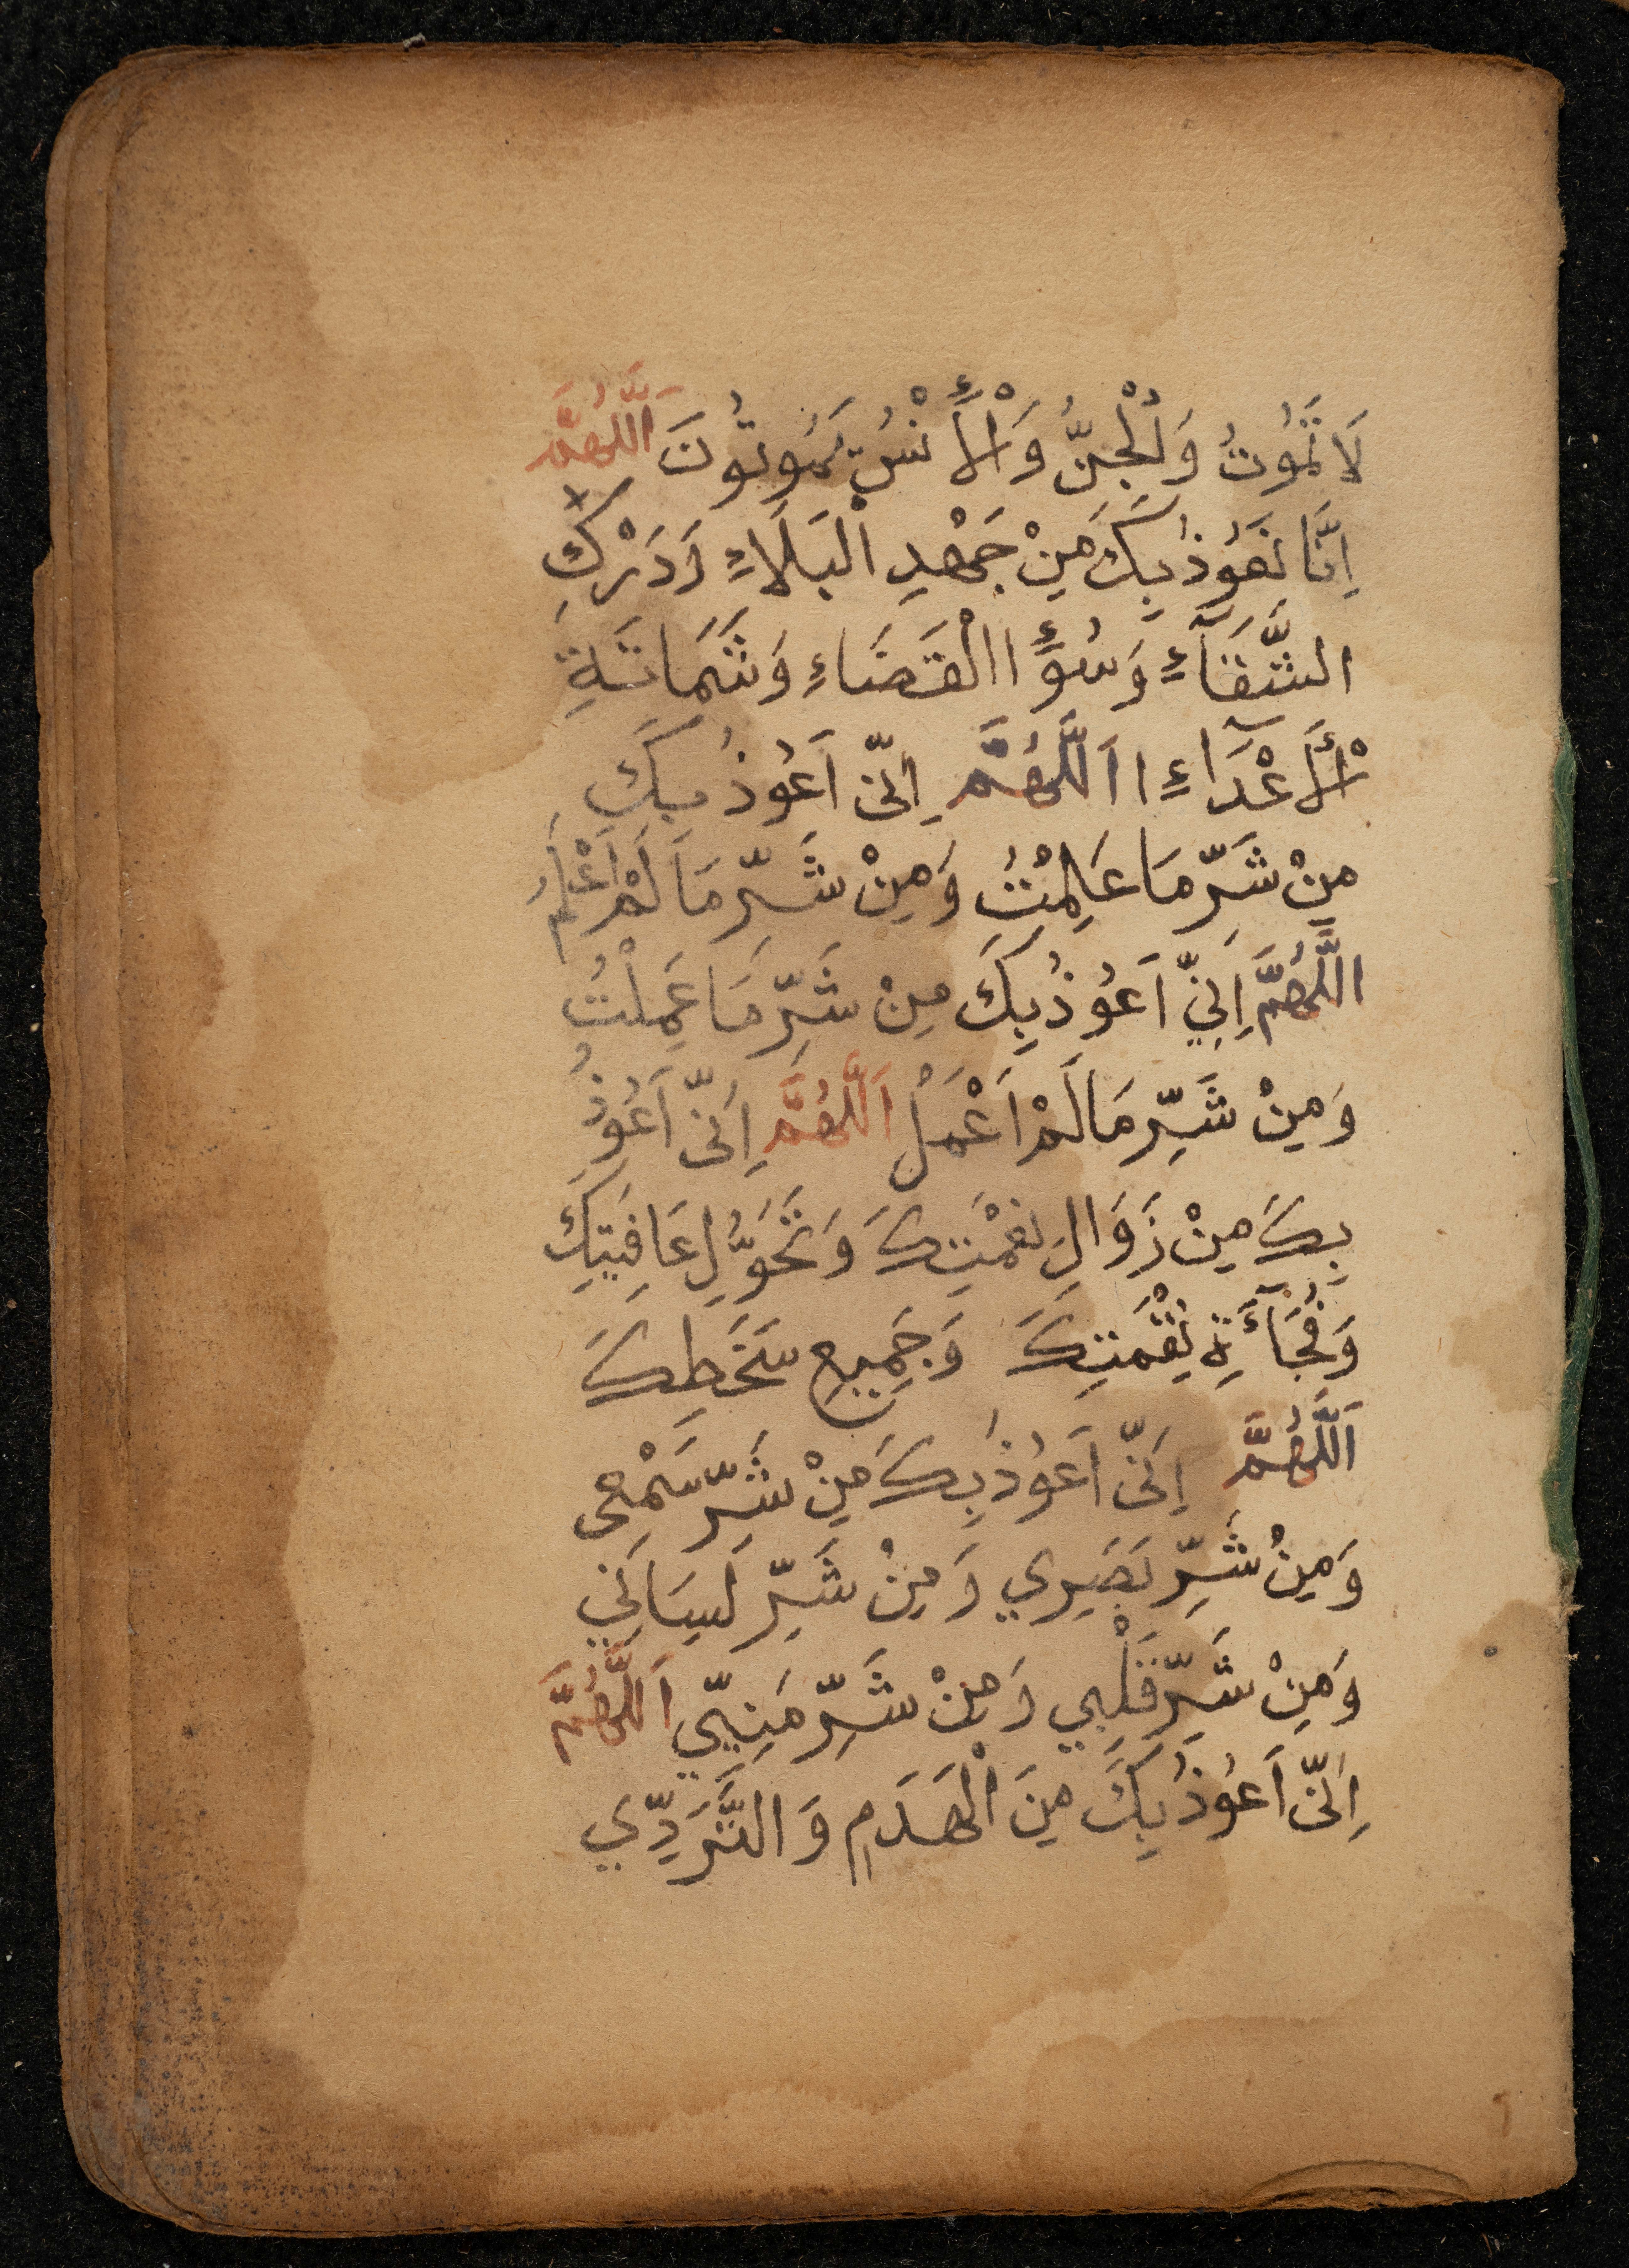 لَا تَمُوْتُ وَلْجِنُّ وَالْأِنْسُ يَمُوتُونَ اَللَّهُمَّ
اِنَّا نَعُوْذُ بِكَ مِنْ جَهْدِ الْبَلَاءِ وَدَرْكِ
الشَّقَآءِ وَسُوْءِ االْقَضَاءِ وَشَمَاتَةِ
الْأَعْدَآءِ ا اَللَّهُمَّ اِنّى اَعُوْذُ بِكَ
مِنْ شَرِّ مَا عَلِمْتُ وَمِنْ شَرِّ مَا لَمْ اَعْلَمْ
اللَّهُمَّ اِنِيّ اَعُوْذُ بِكَ مِنْ شَرِّ مَا عَمِلْتُ
وَمِنْ شَرِّ مَا لَمْ اَعْمَلْ اَللَّهُمَّ اِنّى اَعُوْذُ
بِكَ مِنْ زَوَالِ نِعْمَتِكَ وَتَحَوُّلِ عَافِيَتِكَ
وَفُجَآءَةِ نِقْمَتِكَ وَجَمِيعِ سَخَطِكَ
اَللَّهُمَّ اِنّى اَعُوْذُ بِكَ مِنْ شَرِّ سَمْعِى
وَمِنْ شَرِّ بَصَرِي وَمِنْ شَرِّ لِسَانِي
وَمِنْ شَرِّ قَلْبِي وَمِنْ شَرِّ مَنِيّي اَللَّهُمَّ
اِنّى اَعُوْذُ بِكَ مِنَ الْهَدَمِ وَالتَّرَدِّي